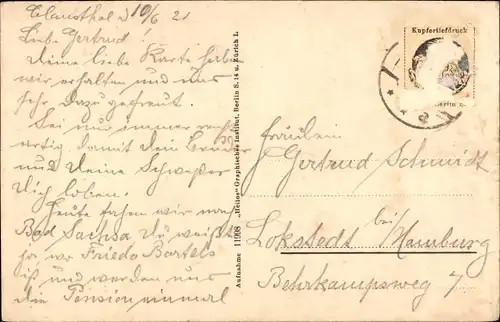 Clausthal d 10/6 21
Liebe Gertrud!
Deine liebe Karte hab
wir erhalten und uns
sehr dazu gefreut.
Sei nur immer recht
artig damit dein Bruder
und Deine Schwester
Dich loben.
Heute fahren wir nach
Bad Sachsa Du weißt
ja, wo Friedo Bartels
ist und werden uns
die Pension einmal
Aufnahme 11908 „Helios“ Graphisches Institut, Berlin S. 14 u. Zürich I.
Kupfertiefdruck
Berlin
Fräulein
Gertrud Schmidt
bei
Lokstedt Hamburg
Behrkampsweg 7